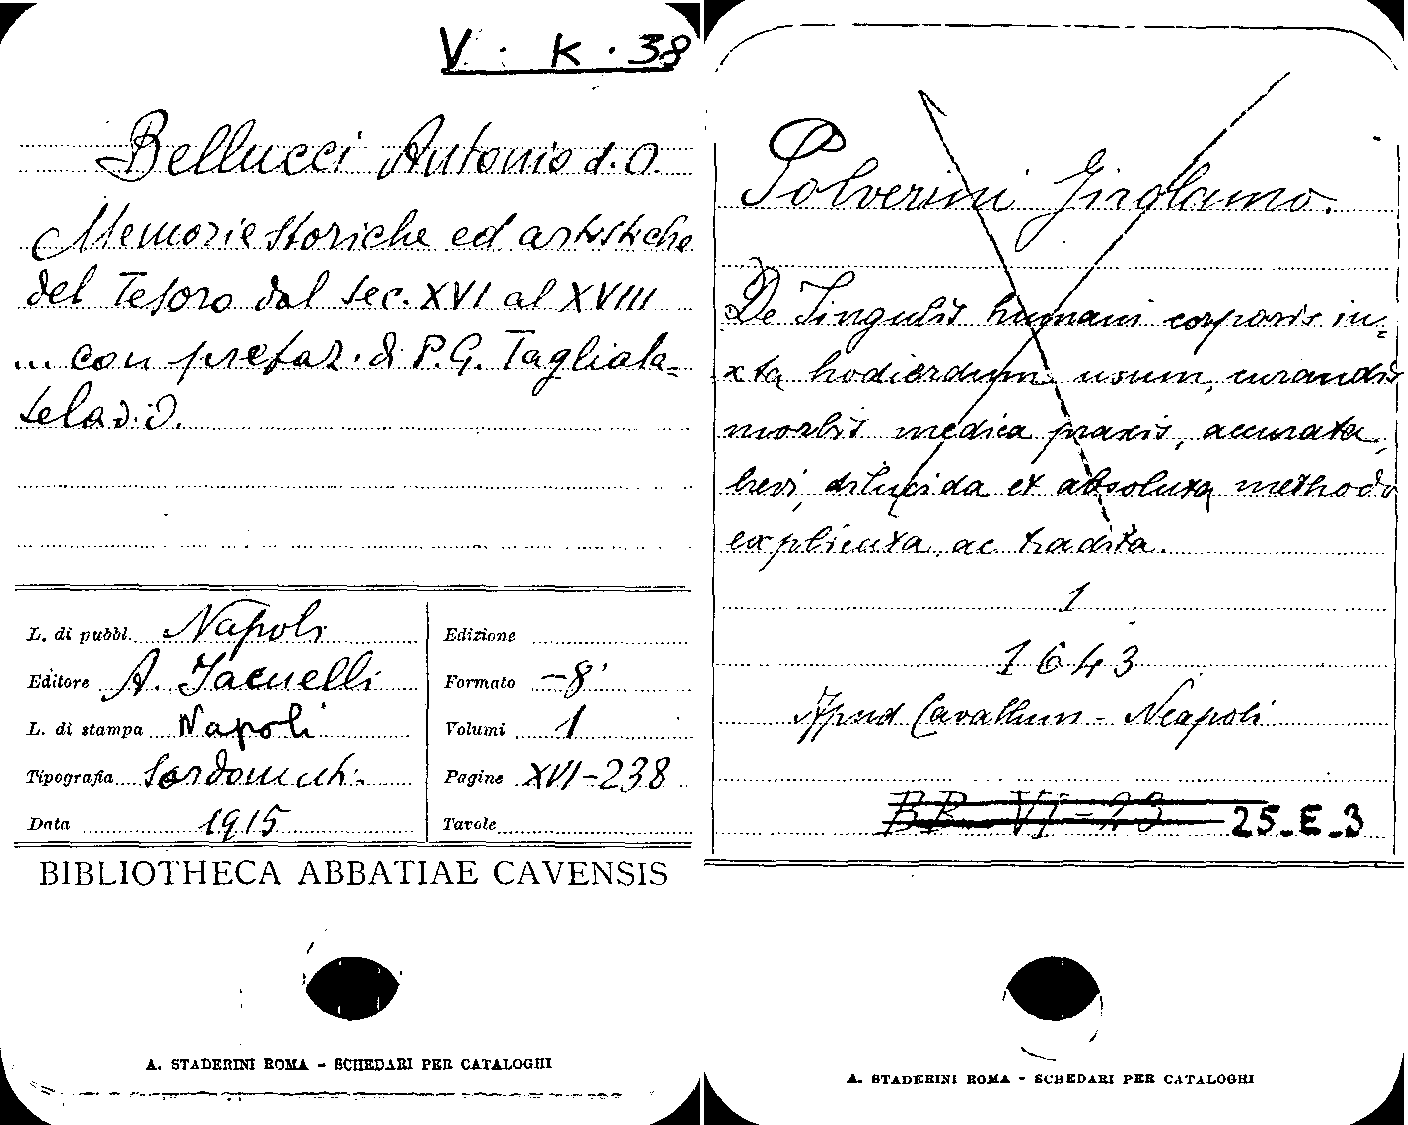 V. K. 38
Bellucci Antonio d. O.
Memorie storiche ed artistiche
del Tesoro dal sec. XVI al XVIII
... con prefaz. di P. G. Tagliala=
tela d. O.
L. di pubbl. Napoli
Editore A. Iacuelli
L. di stampa Napoli
Tipografia
Data 1915
Edizione
Formato -8°
Volumi 1
Pagine XVI-238
Tavole
BIBLIOTHECA ABBATIAE CAVENSIS
A. STADERINI ROMA - SCHEDARI PER CATALOGHI
Polverini Girolamo.
De Singulis humani corporis iu=
xta hodiernum usum, curandis
morbis medica praxis, accurata,
brevi, dilucida et absoluta methodo
explicata ac tradita.
1
1643
Apud Cavallum - Neapoli
BB VI-23 25_E_3
A. STADERINI ROMA - SCHEDARI PER CATALOGHI